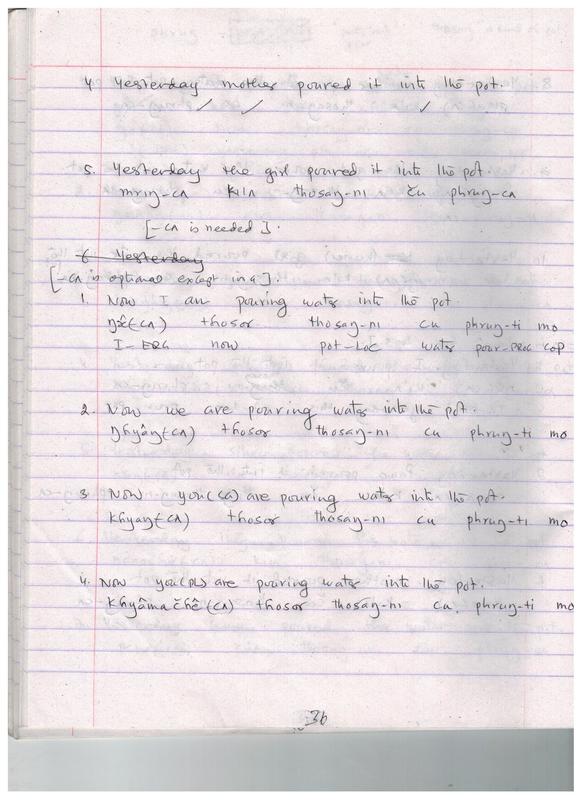 4. Yesterday mother poured it into the pot.
✓ ✓ ✓
5. Yesterday the girl poured it into the pot.
mrıŋ-cʌ kılʌ thosaŋ-nı ču phruŋ-cʌ
[-cʌ is needed].
6 Yesterday
[-cʌ is optional except in 4].
1. Now I am pouring water into the pot.
thosor thosaŋ-nı cu phruŋ-ti mo
I-ERG now pot-LOC water pour-PROG COP
2. Now we are pouring water into the pot.
ŋhyâŋ(cʌ) thosor thosaŋ-nı cu phruŋ-ti mo
3 Now you(sa) are pouring water into the pot.
khyaŋ(cʌ) thosor thosaŋ-nı cu phruŋ-tı mo
4. Now you(PL) are pouring water into the pot.
khyâmačhê(cʌ) thosor thosaŋ-nı cu, phruŋ-ti mo
36